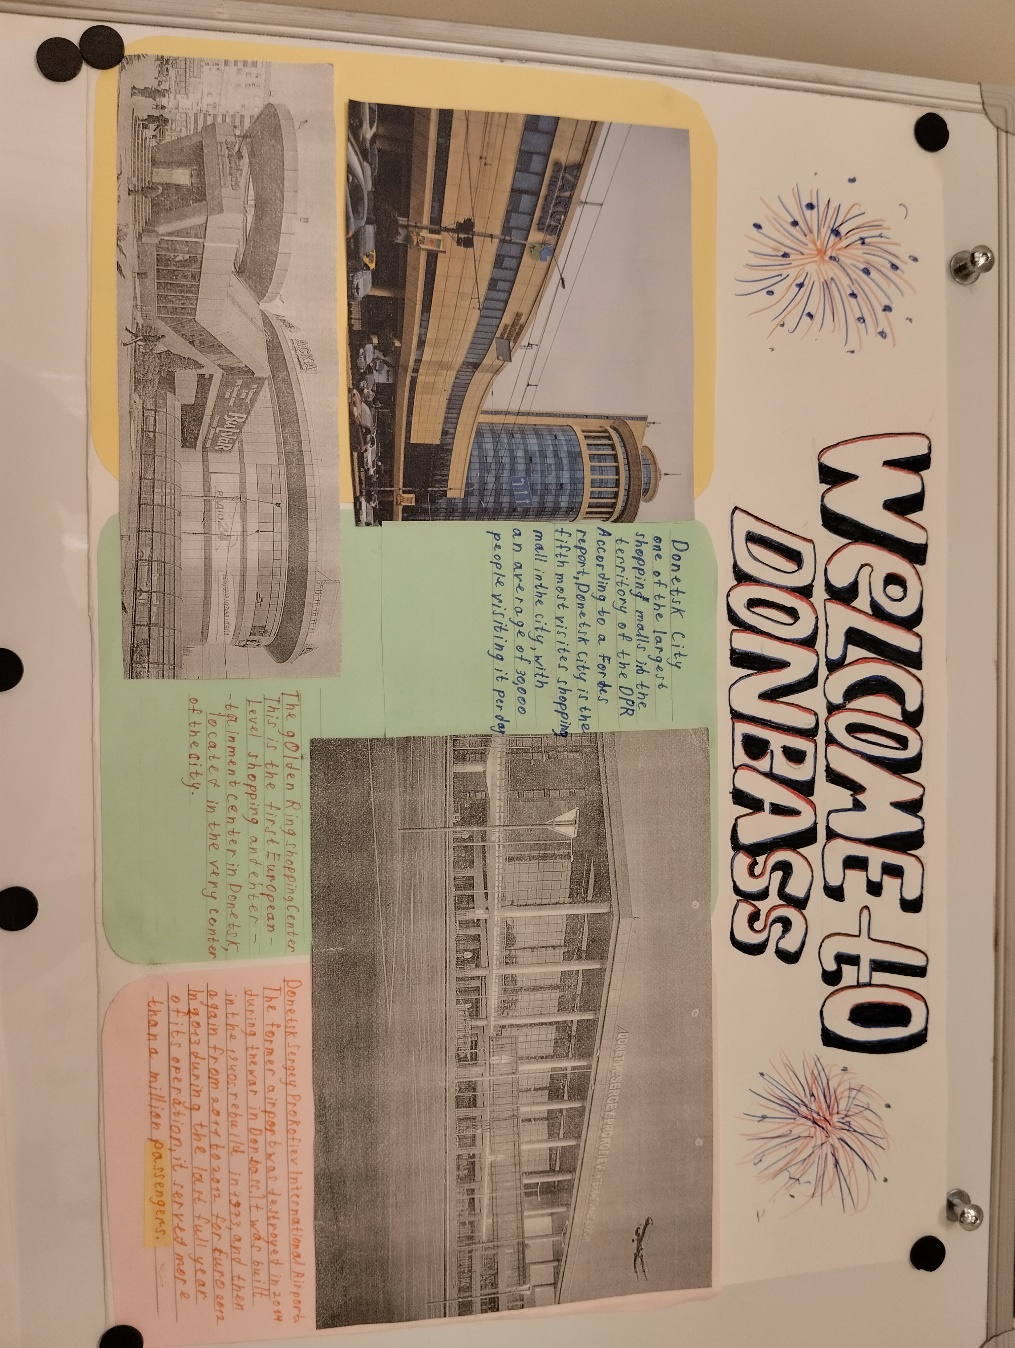 WELCOME to
DONBASS
Donetsk City
one of the largest
shopping malls in the
territory of the DPR
According to a Fordes
report, Donetsk City is the
fifth most visites shopping
mall in the city, with
an average of 30,000
people visiting it per day
The gOlden Ring shopping Center
This is the first European-
Level shopping and enter-
-tainment center in Donetsk,
located in the very center
of the city.
Donetsk Sergey Prokofiev International Airport
The former airport was destroyed in 2014
during the war in Donbass It was built
in the 1940s rebuild in 1973, and then
again from 2011 to 2012 for Euro 2012
In 2013 during the last full year
of its operation, it served more
than a million passengers.